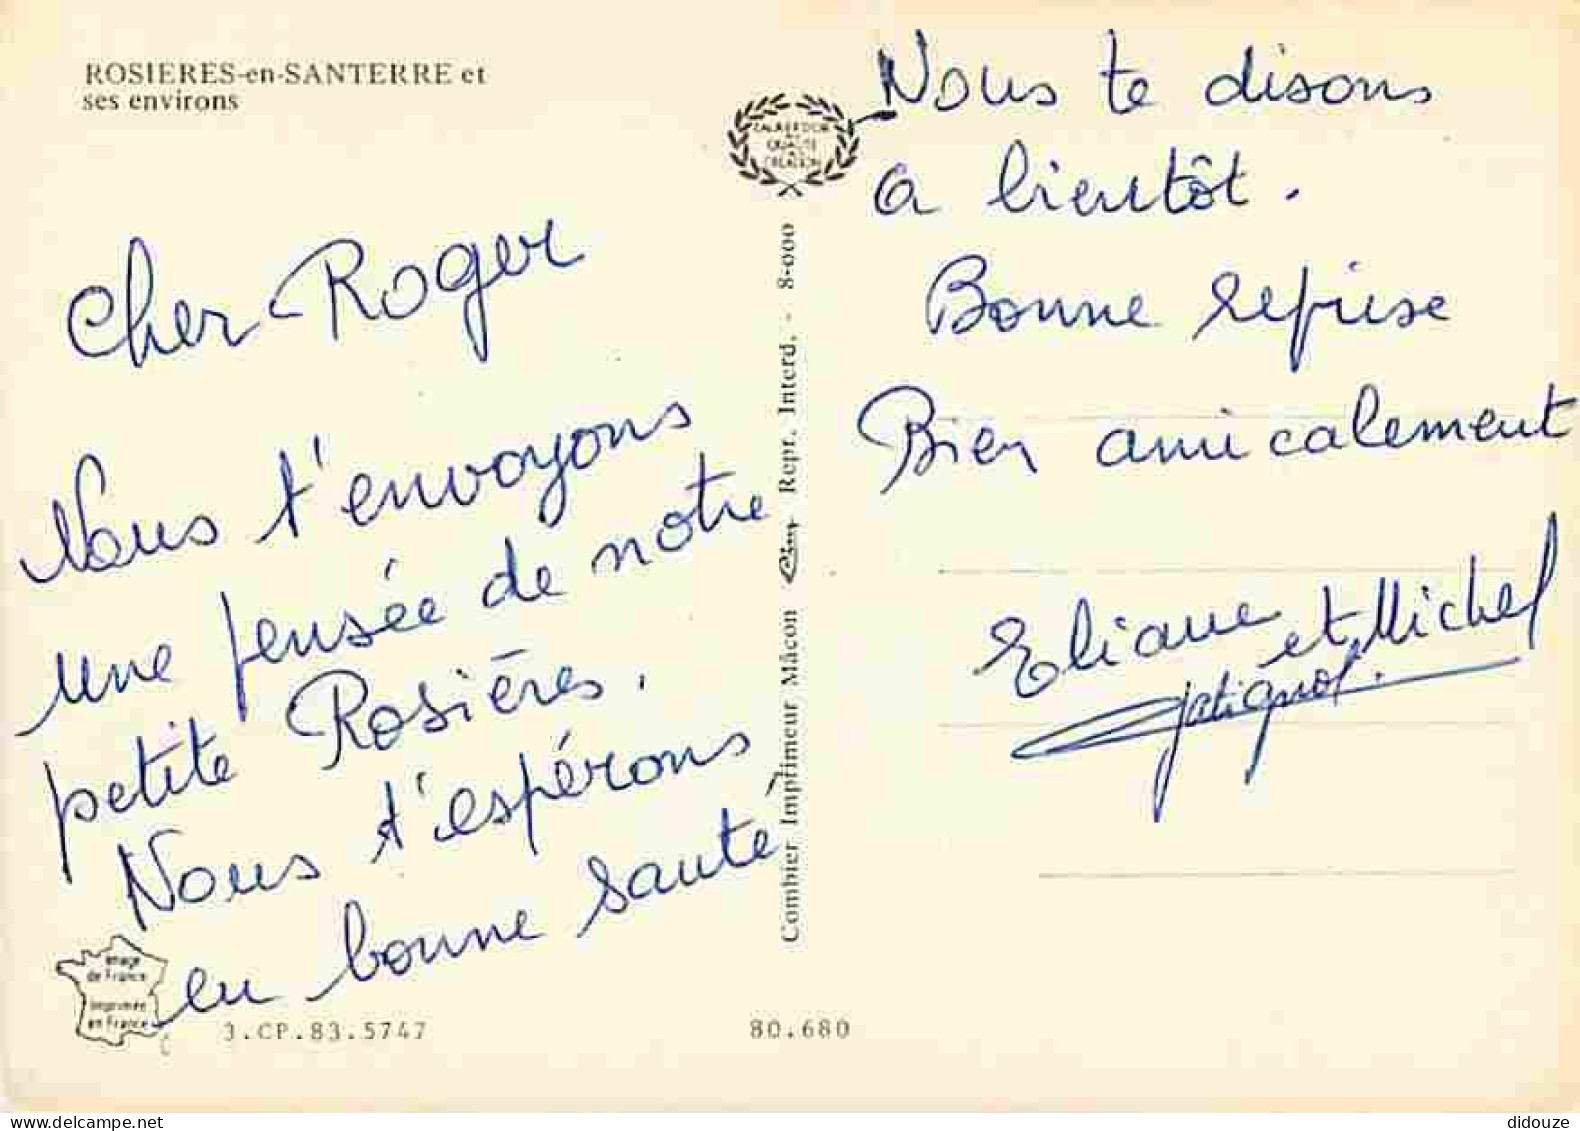 ROSIERES-en-SANTERRE et
ses environs
Cher Roger
Nous t'envoyons
une pensée de notre
petite Rosières.
Nous t'espérons
en bonne santé
Image
de France
Imprimée
en France
3.CP.83.5747
80.680
QUALITÉ
CREATION
Combier Imprimeur Mâcon
Repr. Interd. - 8-000
Nous te disons
a bientôt.
Bonne reprise
Bien amicalement
Eliane et Michel
delcampe.net
didouze